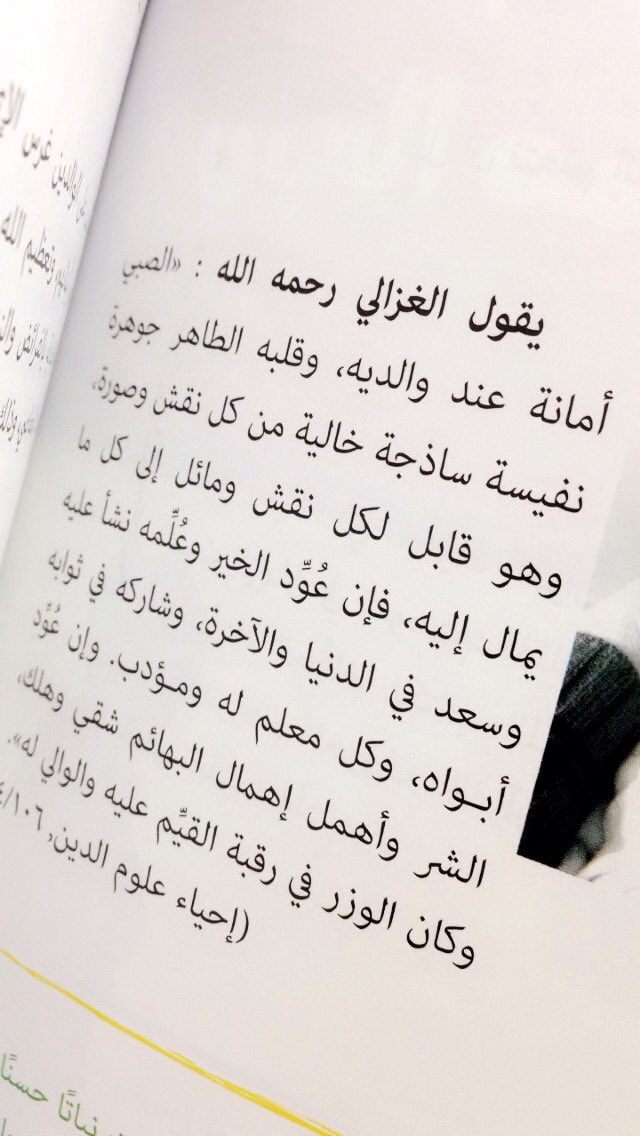 غرس
وتعظيم الله
يقول الغزالي رحمه الله : «الصبي
أمانة عند والديه، وقلبه الطاهر جوهرة
نفيسة ساذجة خالية من كل نقش وصورة،
وهو قابل لكل نقش ومائل إلى كل ما
يمال إليه، فإن عُوِّد الخير وعُلِّمه نشأ عليه
وسعد في الدنيا والآخرة، وشاركه في ثوابه
أبـواه، وكل معلم له ومـؤدب. وإن عُوِّد
الشر وأهمل إهمال البهائم شقي وهلك،
وكان الوزر في رقبة القيِّم عليه والوالي له».
(إحياء علوم الدين، ١٠٦/
نباتًا حسنًا